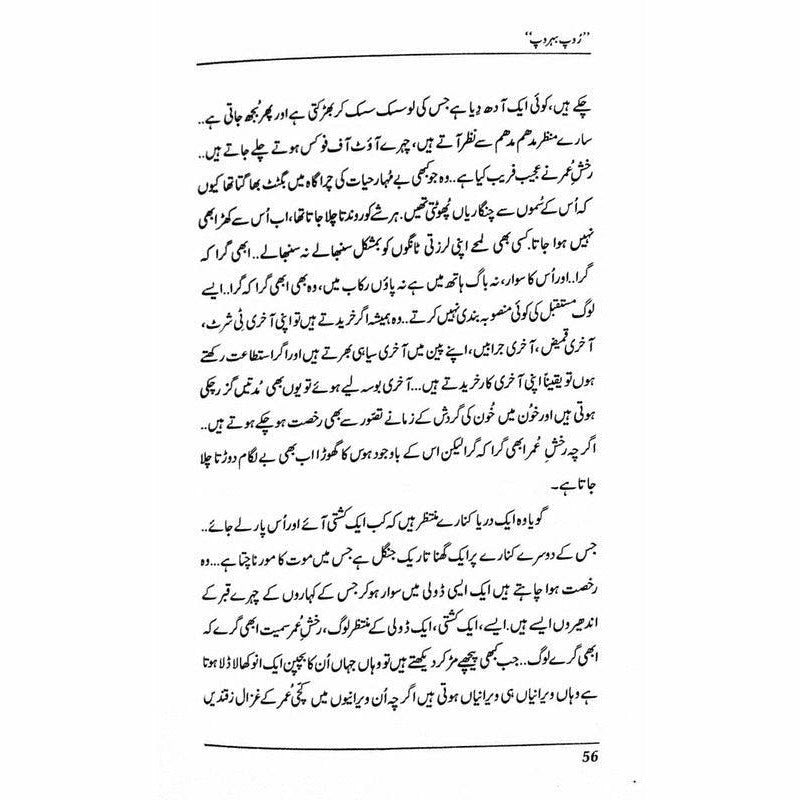 ”رُوپ بہروپ“
چکے ہیں، کوئی ایک آدھ دِیا ہے جس کی لو سسک سسک کر بھڑکتی ہے اور پھر بُجھ جاتی ہے..
سارے منظر مدھم مدھم سے نظر آتے ہیں، چہرے آؤٹ آف فوکس ہوتے چلے جاتے ہیں..
رخشِ عُمر نے عجیب فریب کیا ہے..وہ جو کبھی بے مُہار حیات کی چراگاہ میں بگٹٹ بھاگتا تھا کیوں
کہ اُس کے سُموں سے چنگاریاں پھُوٹتی تھیں. ہر شے کو روندتا چلا جاتا تھا، اب اُس سے کھڑا بھی
نہیں ہوا جاتا. کسی بھی لمحے اپنی لرزتی ٹانگوں کو بمشکل سنبھالے نہ سنبھالے.. ابھی گرا کہ
گرا..اور اُس کا سوار، نہ باگ ہاتھ میں ہے نہ پاؤں رکاب میں، وہ بھی ابھی گرا کہ گرا..ایسے
لوگ مستقبل کی کوئی منصوبہ بندی نہیں کرتے..وہ ہمیشہ اگر خریدتے ہیں تو اپنی آخری ٹی شرٹ،
آخری قمیض، آخری جرابیں، اپنے پین میں آخری سیاہی بھرتے ہیں اور اگر استطاعت رکھتے
ہوں تو یقیناً اپنی آخری کار خریدتے ہیں...آخری بوسہ لیے ہوئے تو یوں بھی مُدتیں گزر چکی
ہوتی ہیں اور خوُن میں خُون کی گردش کے زمانے تصوّر سے بھی رخصت ہو چکے ہوتے ہیں..
اگرچہ رخشِ عُمر ابھی گرا کہ گرا لیکن اس کے باوجود ہوس کا گھوڑا اب بھی بے لگام دوڑتا چلا
جاتا ہے۔
گویا وہ ایک دریا کنارے منتظر ہیں کہ کب ایک کشتی آئے اور اُس پار لے جائے..
جس کے دوسرے کنارے پر ایک گھنا تاریک جنگل ہے جس میں موت کا مور ناچتا ہے...وہ
رخصت ہوا چاہتے ہیں ایک ایسی ڈولی میں سوار ہو کر جس کے کہاروں کے چہرے قبر کے
اندھیروں ایسے ہیں. ایسے، ایک کشتی، ایک ڈولی کے منتظر لوگ، رخشِ عُمر سمیت ابھی گرے کہ
ابھی گرے لوگ..جب کبھی پیچھے مڑ کر دیکھتے ہیں تو وہاں جہاں اُن کا بچپن ایک انوکھا لاڈلا ہوتا
ہے وہاں ویرانیاں ہی ویرانیاں ہوتی ہیں اگرچہ اُن ویرانیوں میں کچی عُمر کے غزال زقندیں
56